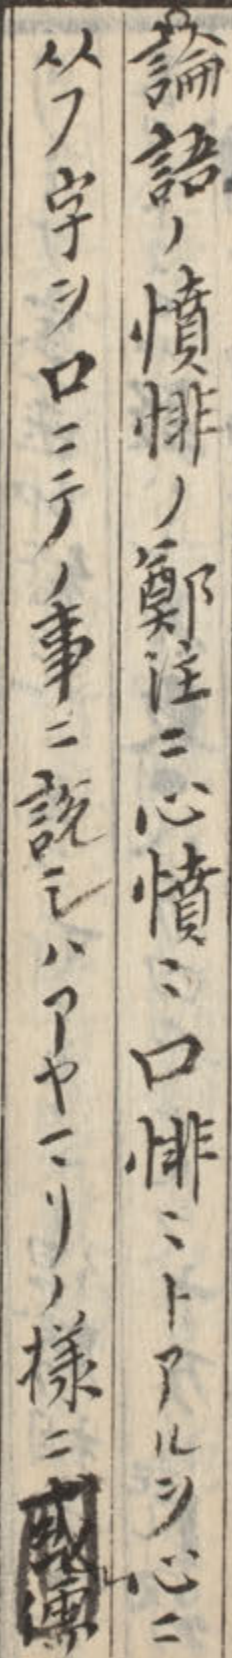 論語ノ憤悱ノ鄭注ニ心憤〻口悱〻トアルヲ心ニ
从フ字ヲ口ニテノ事ニ説シハアヤマリノ様ニ